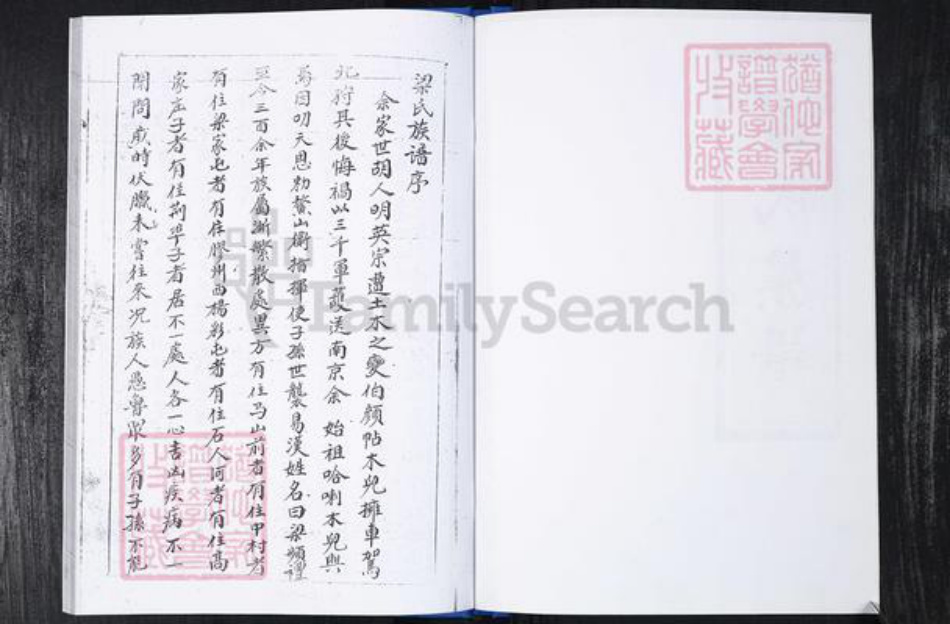 梁氏族谱序
余家世胡人明英宗遭土木之變伯顏帖木兒擁車駕
北狩其後悔禍以三千軍護送南京余 始祖哈喇木兒與
焉因叨天恩勅鰲山衛指揮使子孫世襲易漢姓名曰梁順禮
至今三百余年族属漸繁散處異方有住马山前者有住甲村者
有住梁家屯者有住膠州西楊彩屯者有住石人河者有住高
家庄子者有住荊埠子者居不一處人各一心吉凶疾病不一
聞問歲時伏臘未嘗往來况族人愚魯眾多有子孫不能
猶他家
譜學會
收藏
猶他家
譜學會
收藏
FamilySearch